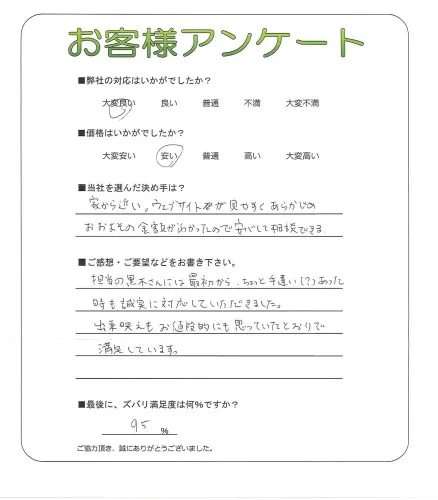 お客様アンケート
■弊社の対応はいかがでしたか?
大変良い 良い 普通 不満 大変不満
■価格はいかがでしたか?
大変安い 安い 普通 高い 大変高い
■当社を選んだ決め手は?
家から近い。ウェブサイトが見やすくあらかじめ
おおよその金額がわかったので安心して相談できる
■ご感想・ご要望などをお書き下さい。
担当の黒木さんには最初から、ちょっと手違い(?)あった
時も誠実に対応していただきました。
出来映えもお値段的にも思っていたとおりで
満足しています。
■最後に、ズバリ満足度は何%ですか?
95 %
ご協力頂き、誠にありがとうございました。